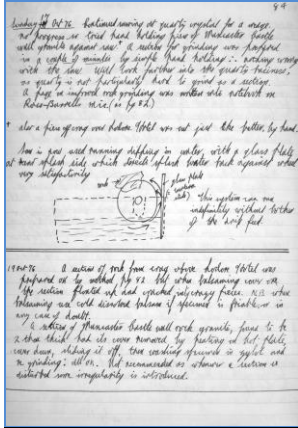 84
Sunday Oct 76 Balanced sawing of quartz crystal for 2 days.
no progress so tried hand holding piece of Muncaster Castle
wall granite against saw. A section for grinding was prepared
in a couple of minutes by simple hand holding: nothing wrong
with the saw. Will look further into the quartz business,
as quartz is not particularly hard to grind as a section.
A page on improved rock grinding was written into notebook on
+ also a piece of crag near hotel was cut just like butter, by hand.
Saw is now used running dipping in water, with a glass plate
at rear splash side which directs splash water back against wheel
very satisfactorily
glass plate
This system can run
indefinitely without bother
of the damp feed
19 Oct 76 A section of rock from crag above Hotel was
prepared on by method pg 42 but when balsaming cover on
the section floated up and cracked into crazy pieces. N.B. when
balsaming use cold dissolved balsam if specimen is friable or in
any case of doubt.
A section of Muncaster Castle wall rock granite, found to be
2 thou thick had its cover removed by heating on hot plate,
cover down, sliding it off, then washing specimen in xylol and
re grinding: all OK. Not recommended as whenever a section is
disturbed some irregularity is introduced.